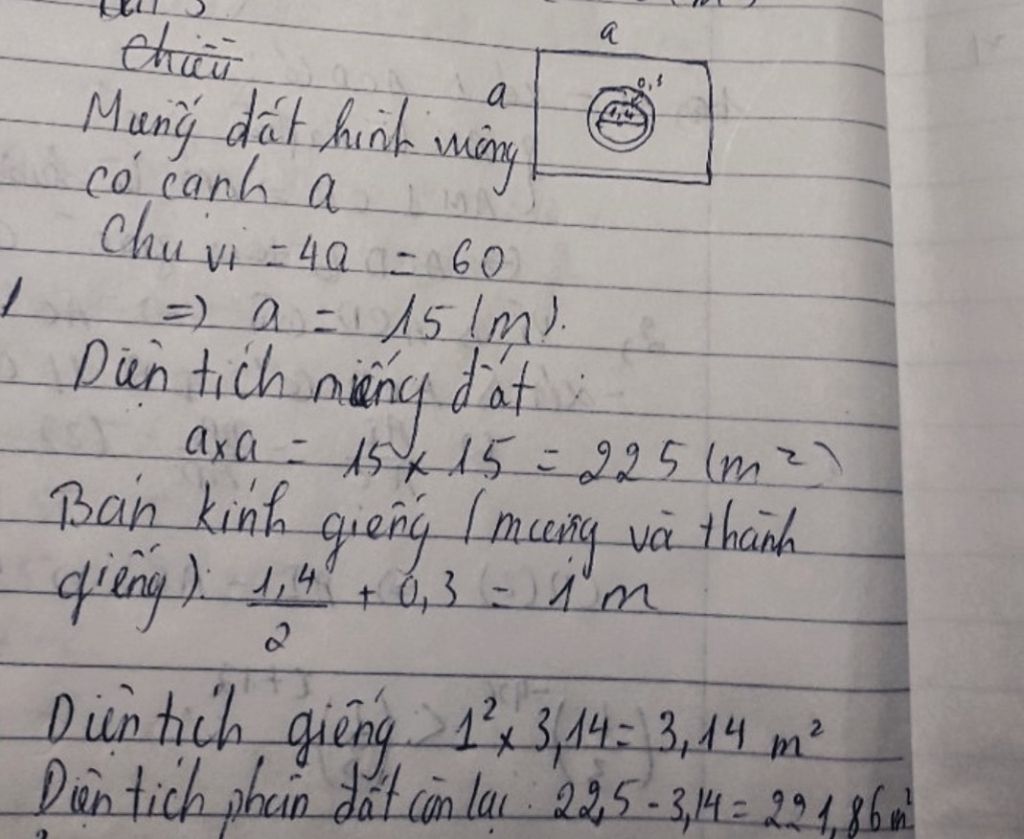 Chiều
a
a
0,3
1,4
Mưng đất hình vuông
có cạnh a
Chu vi = 4a = 60
=> a = 15 (m).
Diện tích miếng đất :
axa = 15 x 15 = 225 (m²)
Bán kính giếng (miệng và thành
giếng): 1,4/2 + 0,3 = 1 m
Diện tích giếng 1² x 3,14 = 3,14 m²
Diện tích phần đất còn lại : 22,5 - 3,14 = 221,86 m²